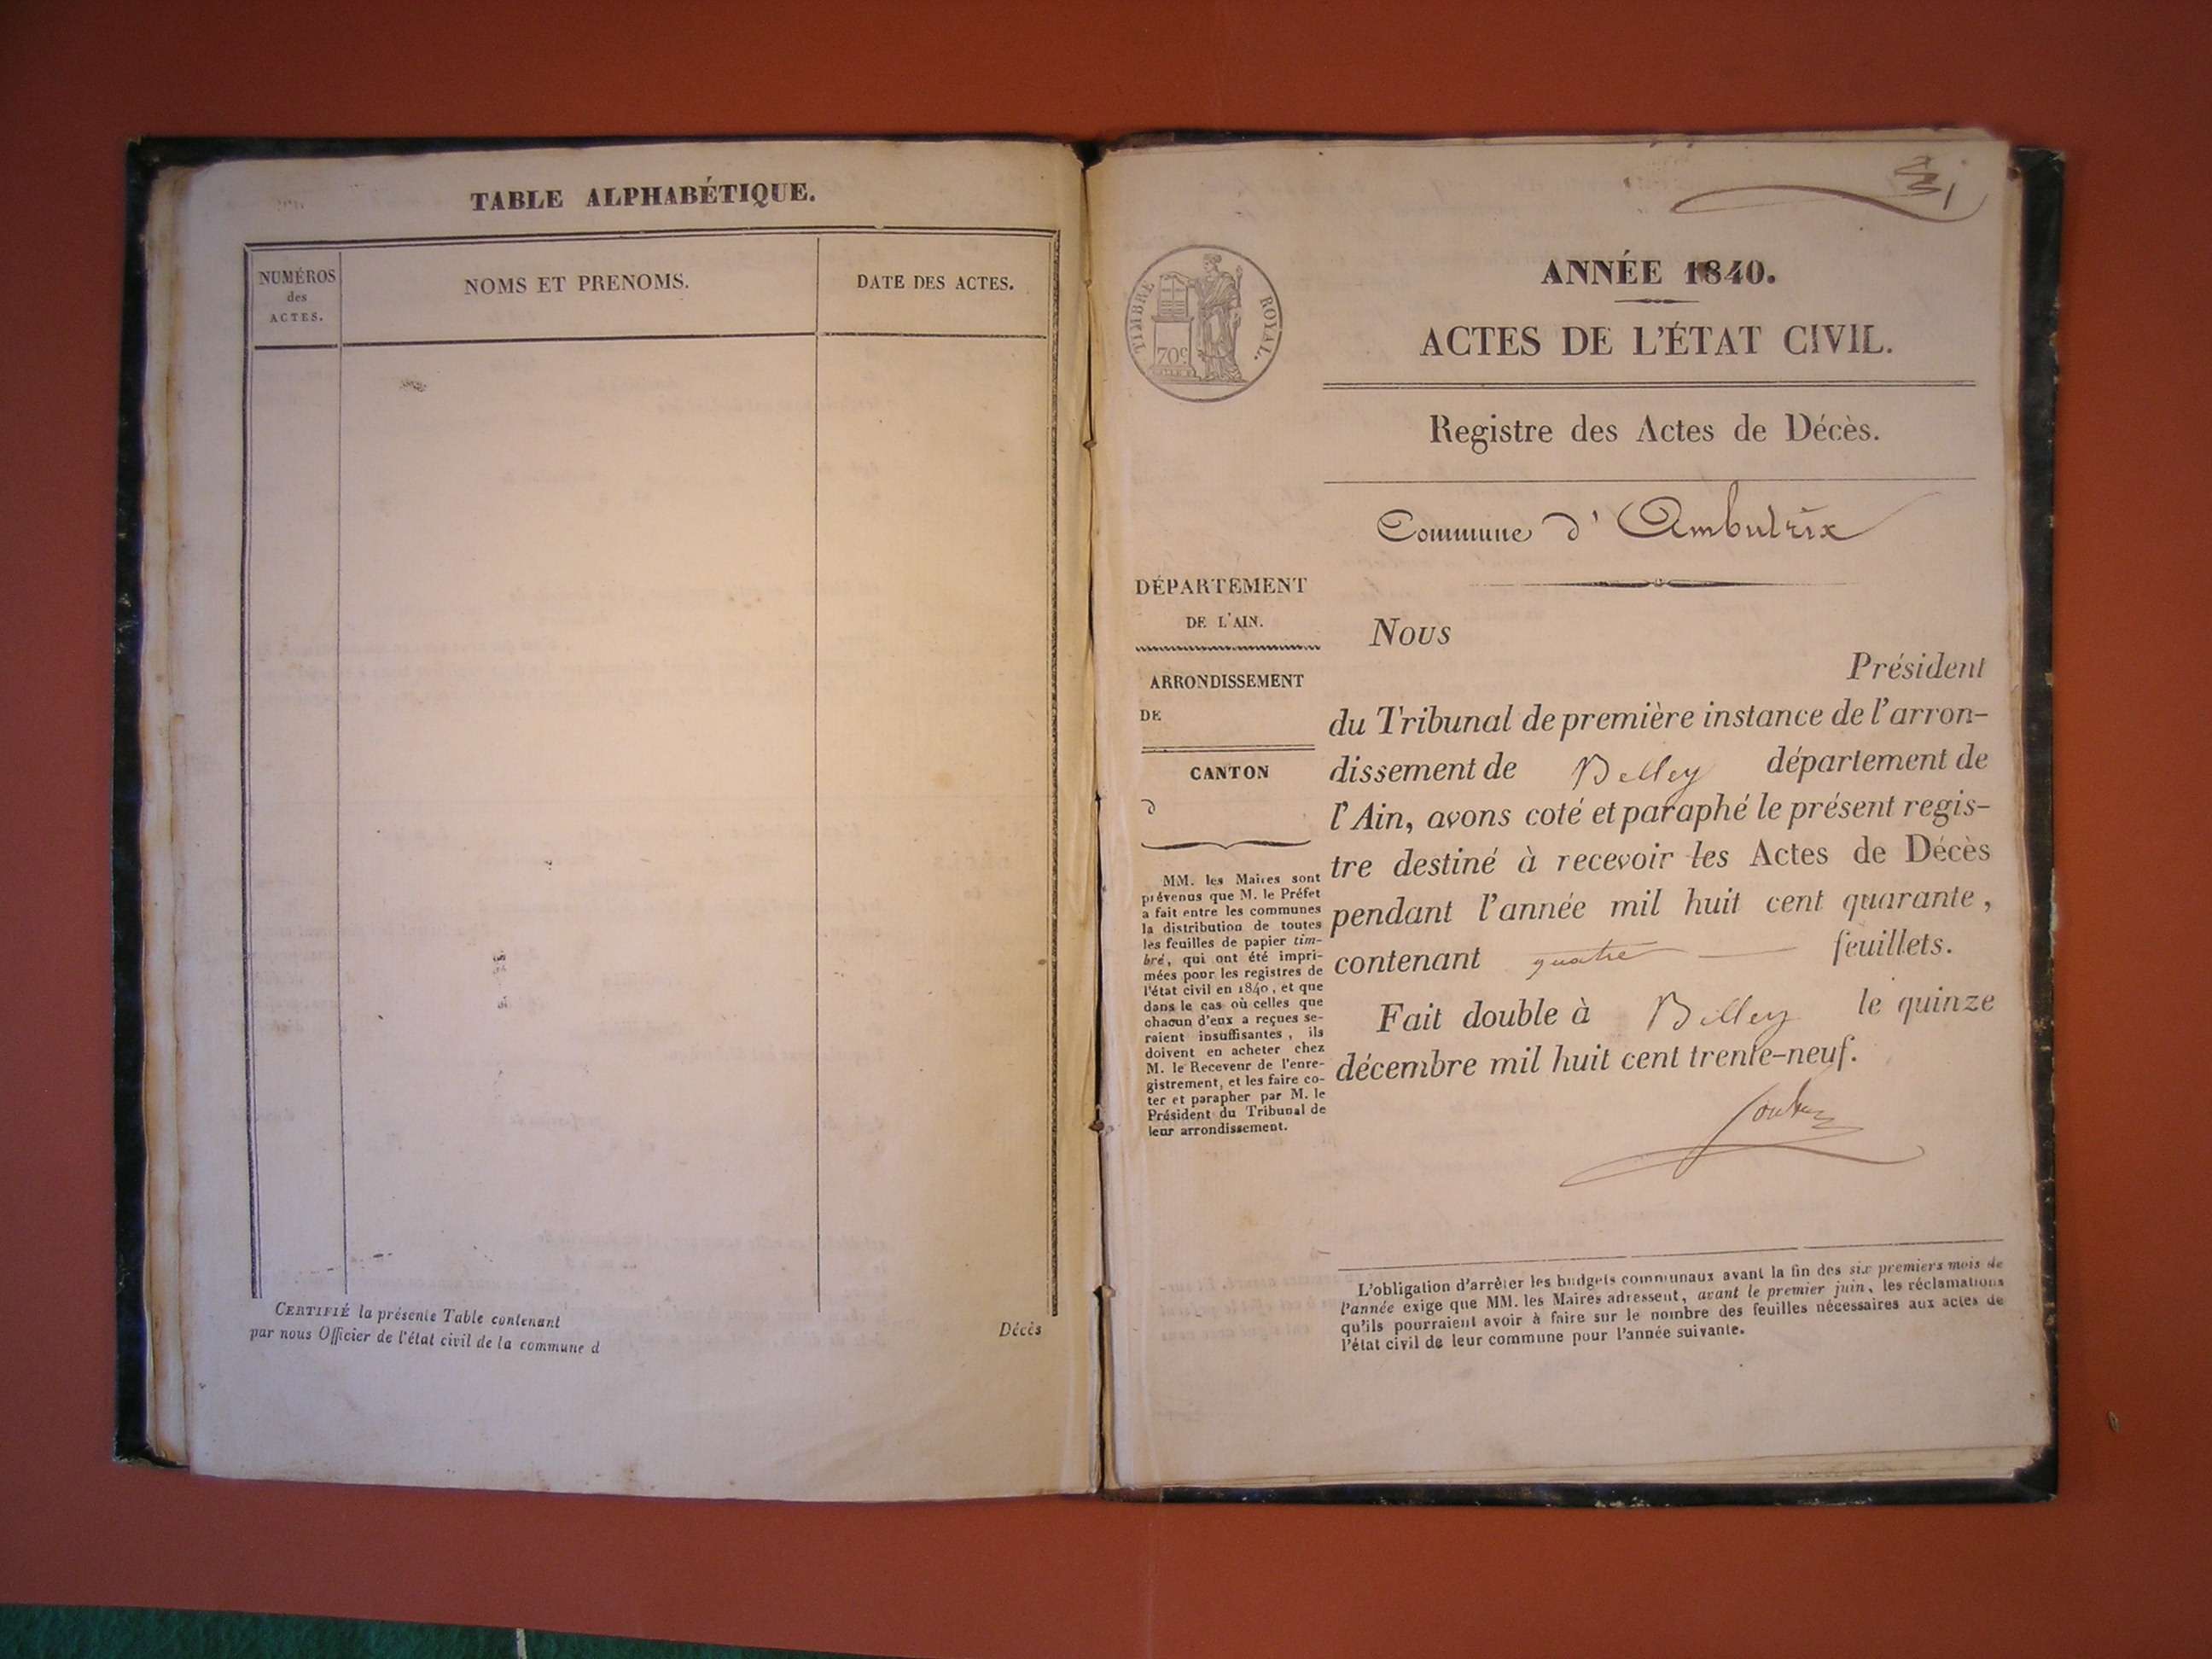 TABLE ALPHABÉTIQUE.
NUMÉROS
des
ACTES.
NOMS ET PRENOMS.
DATE DES ACTES.
CERTIFIÉ la présente Table contenant
par nous Officier de l'état civil de la commune d
Décès
TIMBRE ROYAL.
70c
ANNÉE 1840.
ACTES DE L'ÉTAT CIVIL.
Registre des Actes de Décès.
Commune d' Ambutrix
DÉPARTEMENT
DE L'AIN.
ARRONDISSEMENT
DE
CANTON
d
MM. les Maires sont
prévenus que M. le Préfet
a fait entre les communes
la distribution de toutes
les feuilles de papier tim-
bré, qui ont été impri-
mées pour les registres de
l'état civil en 1840, et que
dans le cas où celles que
chacun d'eux a reçues se-
raient insuffisantes, ils
doivent en acheter chez
M. le Receveur de l'enre-
gistrement, et les faire co-
ter et parapher par M. le
Président du Tribunal de
leur arrondissement.
Nous
Président
du Tribunal de première instance de l'arron-
dissement de Belley département de
l'Ain, avons coté et paraphé le présent regis-
tre destiné à recevoir les Actes de Décès
pendant l'année mil huit cent quarante,
contenant quatre feuillets.
Fait double à Belley le quinze
décembre mil huit cent trente-neuf.
L'obligation d'arrêter les budgets communaux avant la fin des six premiers mois de
l'année exige que MM. les Maires adressent, avant le premier juin, les réclamations
qu'ils pourraient avoir à faire sur le nombre des feuilles nécessaires aux actes de
l'état civil de leur commune pour l'année suivante.